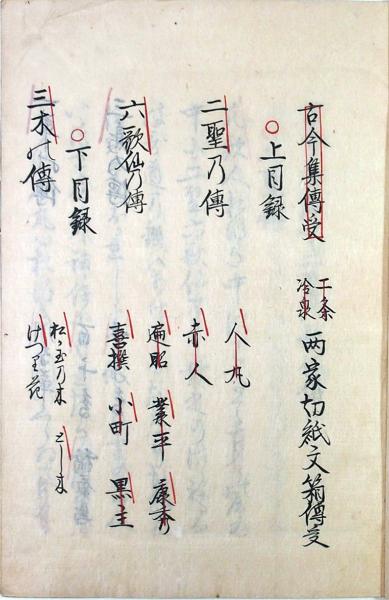 古今集傳受 二条冷泉 両家切紙文箱傳受
○上目録
二聖乃傳 人丸
赤人
六歌仙乃傳 遍昭 業平 康秀
喜撰 小町 黒主
○下目録
三木の傳
けつり花